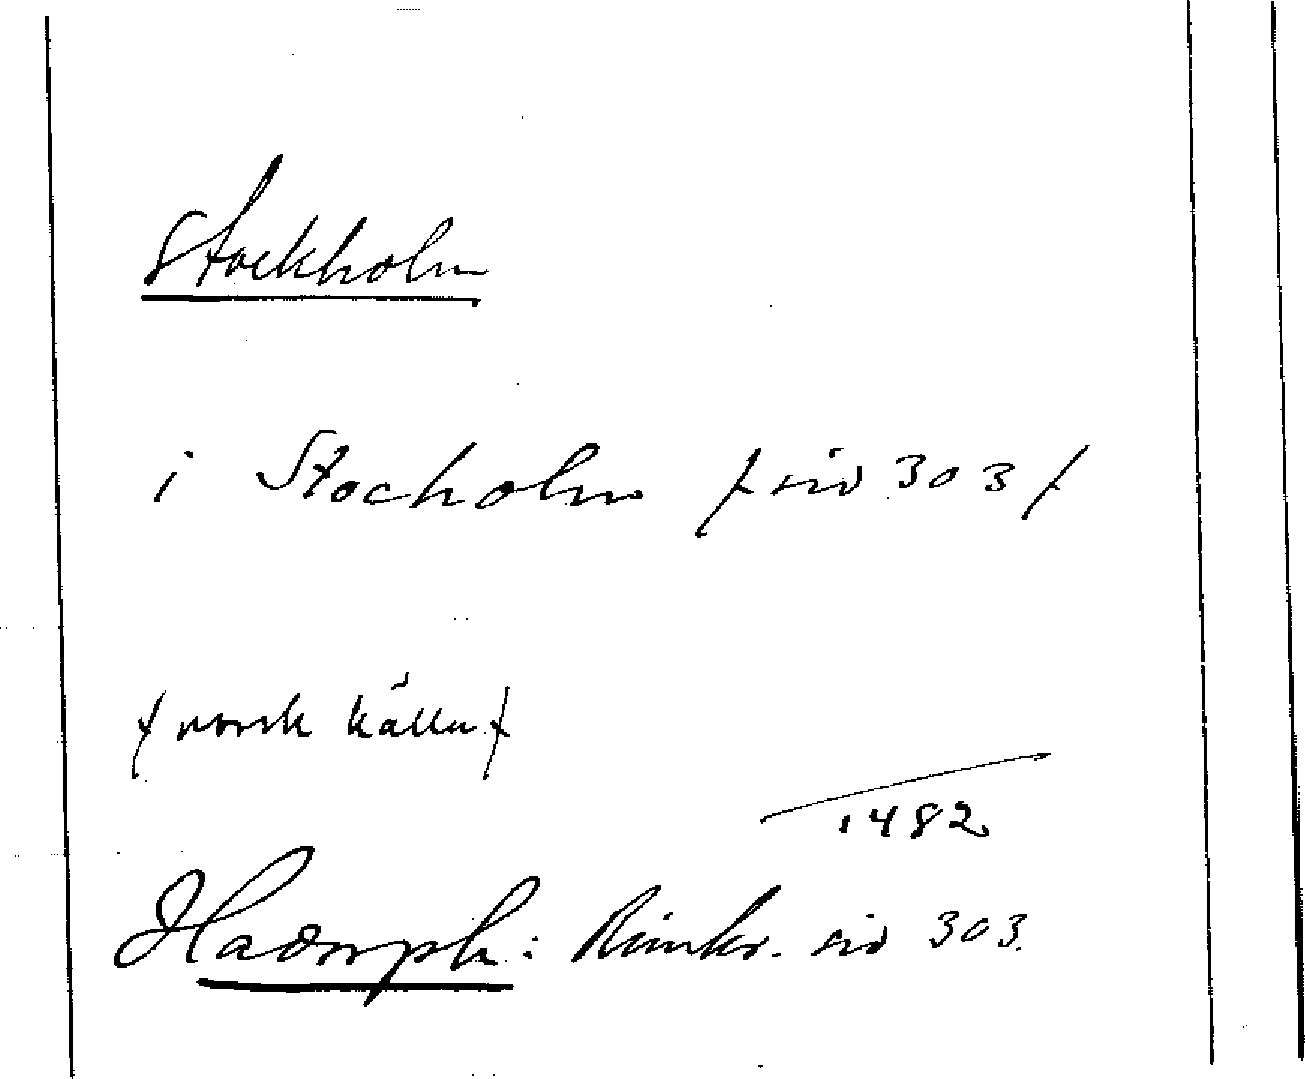 Stockholm
i Stocholm (sid 303)
(norsk källa)
1482
Hadorph: Rimkr. sid 303.